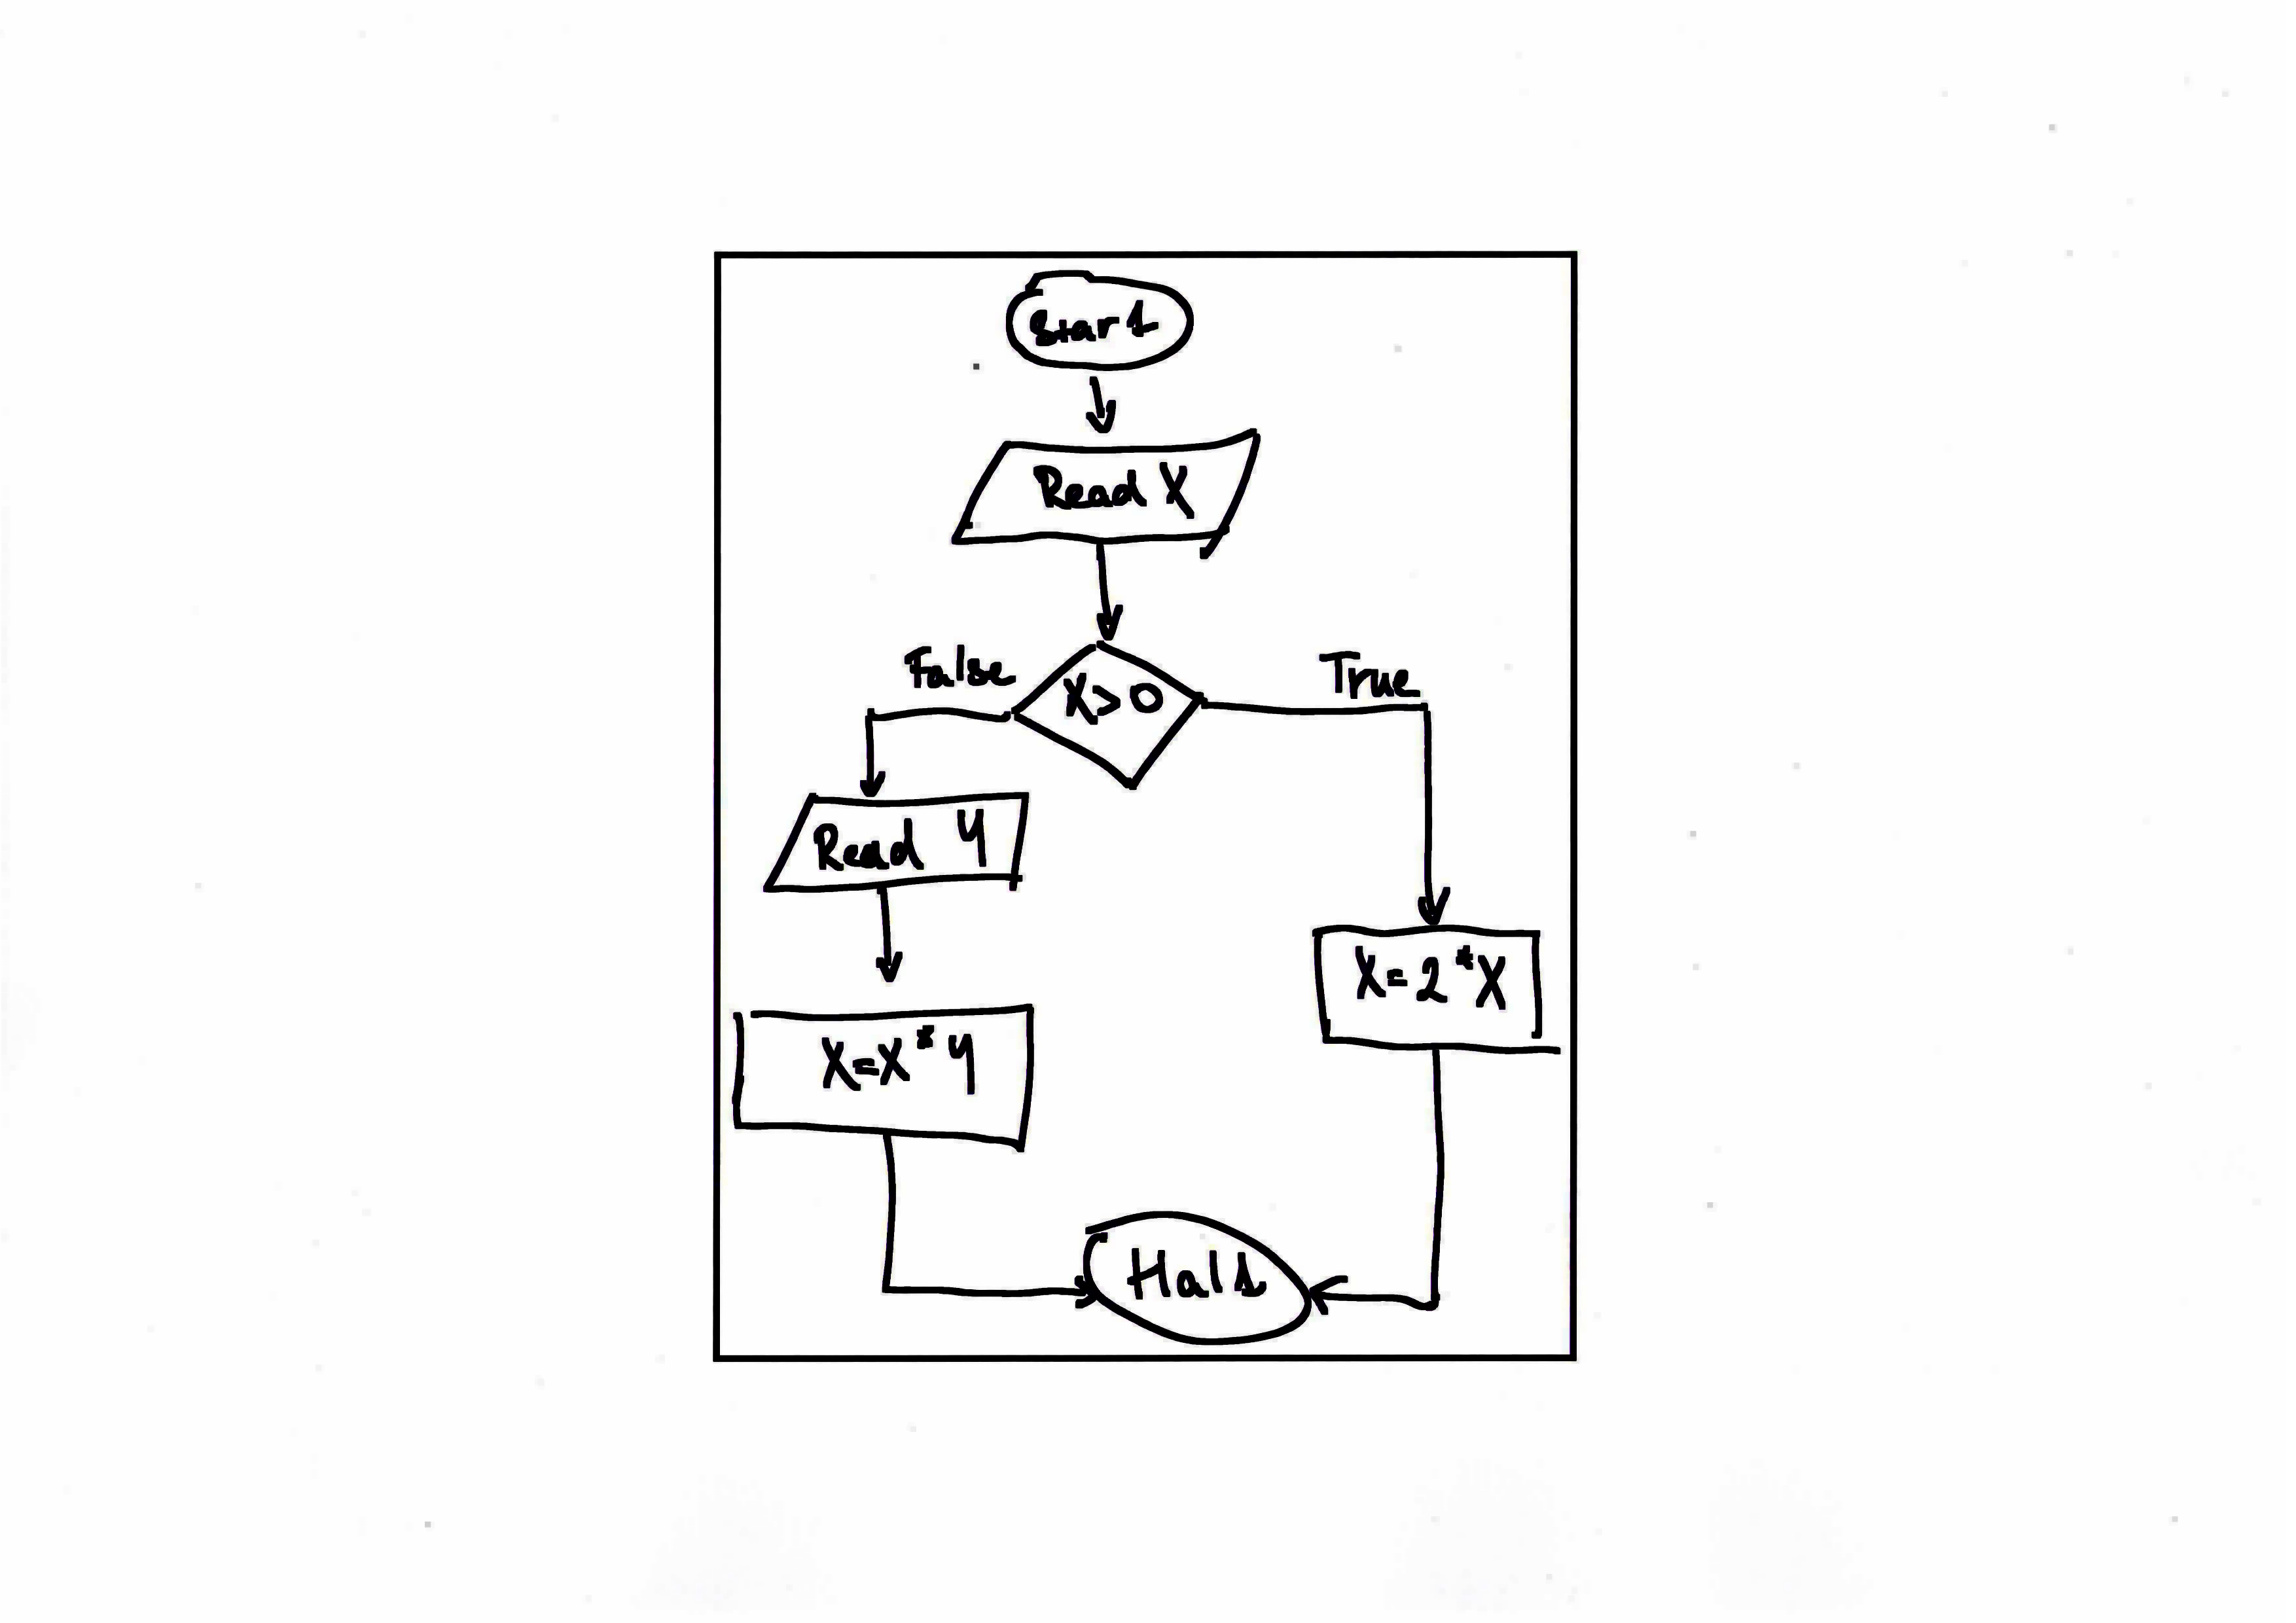 Start
Read X
False
X>0
True
Read Y
X=2*X
X=X*Y
Halt